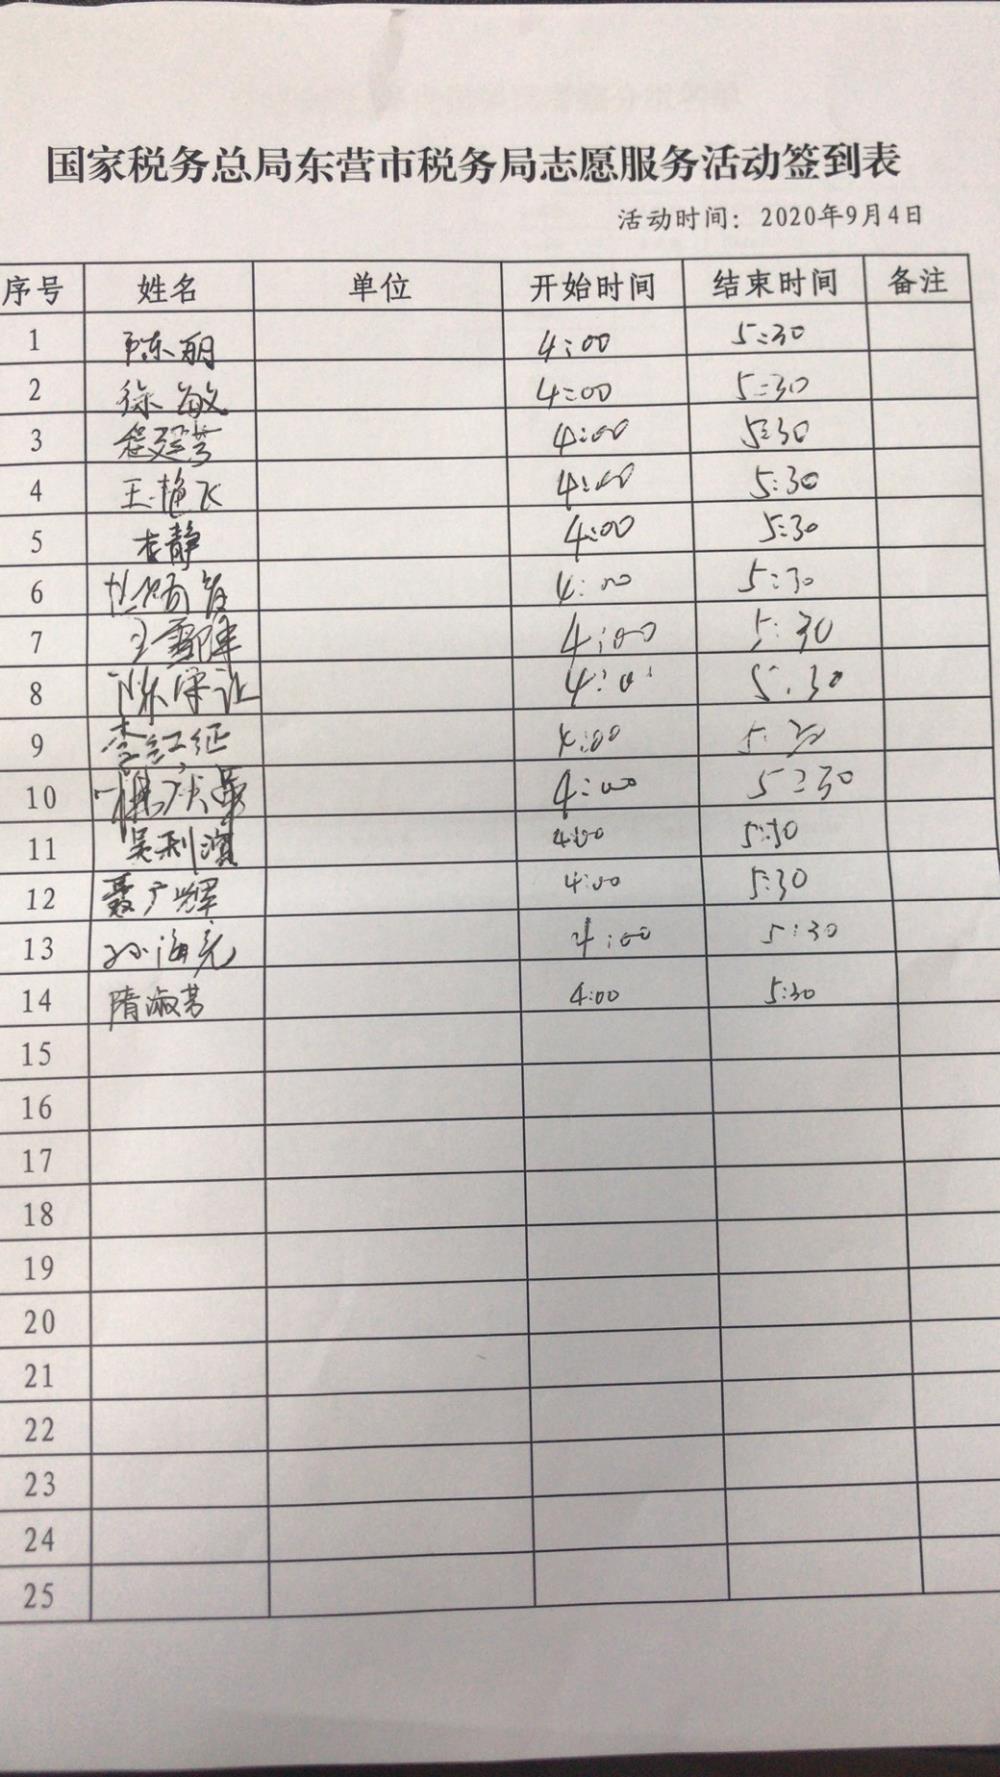 国家税务总局东营市税务局志愿服务活动签到表
活动时间：2020年9月4日
序号 姓名 单位 开始时间 结束时间 备注
1 陈丽 4:00 5:30
2 徐敏 4:00 5:30
3 4:00 5:30
4 王艳飞 4:00 5:30
5 李静 4:00 5:30
6 4:00 5:30
7 王 4:00 5:30
8 陈保让 4:00 5:30
9 李红征 4:00 5:30
10 4:00 5:30
11 吴利滨 4:00 5:30
12 聂广辉 4:00 5:30
13 孙海亮 4:00 5:30
14 隋淑芳 4:00 5:30
15
16
17
18
19
20
21
22
23
24
25